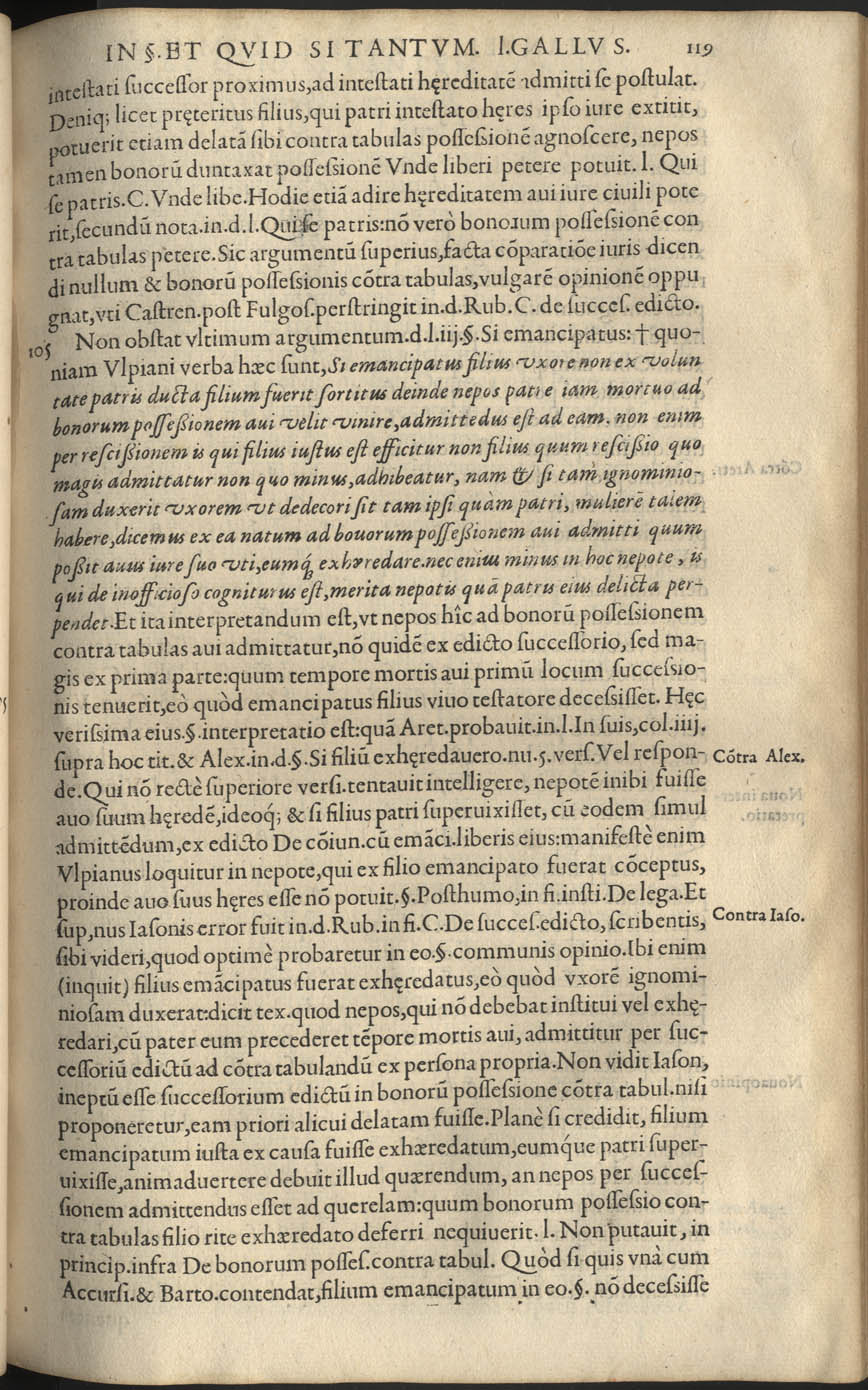 IN §.ET QVID SI TANTVM. l.GALLVS. 119
inteſtati ſucceſſor proximus,ad inteſtati hęreditatē admitti ſe poſtulat.
Deniq; licet pręteritus filius,qui patri inteſtato hęres ipſo iure extitit,
potuerit etiam delatā ſibi contra tabulas poſſeſsionē agnoſcere, nepos
tamen bonorū duntaxat poſſeſsionē Vnde liberi petere potuit. l. Qui
ſe patris.C.Vnde libe.Hodie etiā adire hęreditatem aui iure ciuili pote
rit,ſecundū nota.in.d.l.Qui ſe patris:nō verò bonorum poſſeſsionē con
tra tabulas petere.Sic argumentū ſuperius,facta cōparatiōe iuris dicen
di nullum & bonorū poſſeſsionis cōtra tabulas,vulgarē opinionē oppu
gnat,vti Caſtren.poſt Fulgoſ.perſtringit in.d.Rub.C. de ſucceſ. edicto.
105 Non obſtat vltimum argumentum.d.l.iij.§.Si emancipatus: † quo-
niam Vlpiani verba hæc ſunt,Si emancipatus filius vxore non ex volun
tate patris ducta filium fuerit ſortitus deinde nepos patre iam mortuo ad
bonorum poſſeſsionem aui velit vinire,admittedus eſt ad eam. non enim
per reſciſsionem is qui filius iuſtus eſt efficitur non filius quum reſciſsio quo
magis admittatur non quo minus,adhibeatur, nam & ſi tam ignominio-
ſam duxerit vxorem vt dedecori ſit tam ipſi quàm patri, mulierē talem
habere,dicemus ex ea natum ad bouorum poſſeſsionem aui admitti quum
poſsit auus iure ſuo vti,eumq́ exhæredare.nec enim minus in hoc nepote, is
qui de inofficioſo cogniturus eſt,merita nepotis quā patris eius delicta per-
pendet.Et ita interpretandum eſt,vt nepos hîc ad bonorū poſſeſsionem
contra tabulas aui admittatur,nō quidē ex edicto ſucceſſorio, ſed ma-
gis ex prima parte:quum tempore mortis aui primū locum ſucceſsio-
nis tenuerit,eò quòd emancipatus filius viuo teſtatore deceſsiſſet. Hęc
veriſsima eius.§.interpretatio eſt:quā Aret.probauit.in.l.In ſuis,col.iiij.
ſupra hoc tit.& Alex.in.d.§.Si filiū exhęredauero.nu.5.verſ.Vel reſpon-
Cōtra Alex.
de.Qui nō rectè ſuperiore verſi.tentauit intelligere, nepotē inibi fuiſſe
auo ſuum hęredē,ideoq́; & ſi filius patri ſuperuixiſſet, cū eodem ſimul
admittēdum,ex edicto De cōiun.cū emāci.liberis eius:manifeſtè enim
Vlpianus loquitur in nepote,qui ex filio emancipato fuerat cōceptus,
proinde auo ſuus hęres eſſe nō potuit.§.Poſthumo,in fi.inſti.De lega.Et
ſup,nus Iaſonis error fuit in.d.Rub.in fi.C.De ſucceſ.edicto, ſcribentis,
Contra Iaſo.
ſibi videri,quod optimè probaretur in eo.§.communis opinio.Ibi enim
(inquit) filius emācipatus fuerat exhęredatus,eò quòd vxorē ignomi-
nioſam duxerat:dicit tex.quod nepos,qui nō debebat inſtitui vel exhę-
redari,cū pater eum precederet tēpore mortis aui, admittitur per ſuc-
ceſſoriū edictū ad cōtra tabulandū ex perſona propria.Non vidit Iaſon,
ineptū eſſe ſucceſſorium edictū in bonorū poſſeſsione cōtra tabul.niſi
proponeretur,eam priori alicui delatam fuiſſe.Planè ſi credidit, filium
emancipatum iuſta ex cauſa fuiſſe exhæredatum,eumq́ue patri ſuper-
uixiſſe,animaduertere debuit illud quærendum, an nepos per ſucceſ-
ſionem admittendus eſſet ad querelam:quum bonorum poſſeſsio con-
tra tabulas filio rite exhæredato deferri nequiuerit. l. Non putauit, in
princip.infra De bonorum poſſeſ.contra tabul. Quòd ſi quis vnà cum
Accurſi.& Barto.contendat,filium emancipatum in eo.§. nō deceſsiſſe